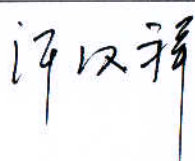 许汉祥